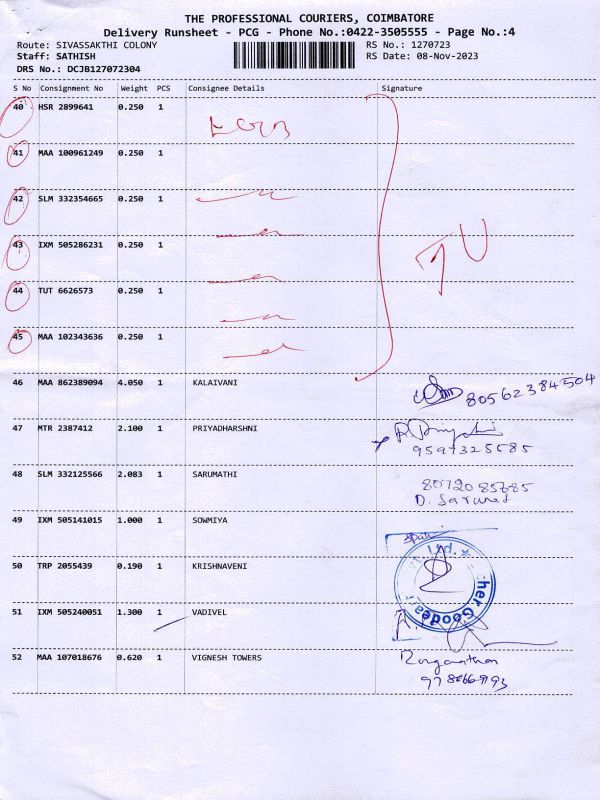 THE PROFESSIONAL COURIERS, COIMBATORE
Delivery Runsheet - PCG - Phone No.:0422-3505555 - Page No.:4
Route: SIVASSAKTHI COLONY RS No.: 1270723
Staff: SATHISH RS Date: 08-Nov-2023
DRS No.: DCJB127072304
S No Consignment No Weight PCS Consignee Details Signature
40 HSR 2899641 0.250 1
41 MAA 100961249 0.250 1
42 SLM 332354665 0.250 1
43 IXM 505286231 0.250 1
44 TUT 6626573 0.250 1
45 MAA 102343636 0.250 1
46 MAA 862389094 4.050 1 KALAIVANI 80562384504
47 MTR 2387412 2.100 1 PRIYADHARSHNI
9597325585
48 SLM 332125566 2.083 1 SARUMATHI 8072085785
D. Sarumat
49 IXM 505141015 1.000 1 SOWMIYA
50 TRP 2055439 0.190 1 KRISHNAVENI
51 IXM 505240051 1.300 1 VADIVEL
52 MAA 107018676 0.620 1 VIGNESH TOWERS